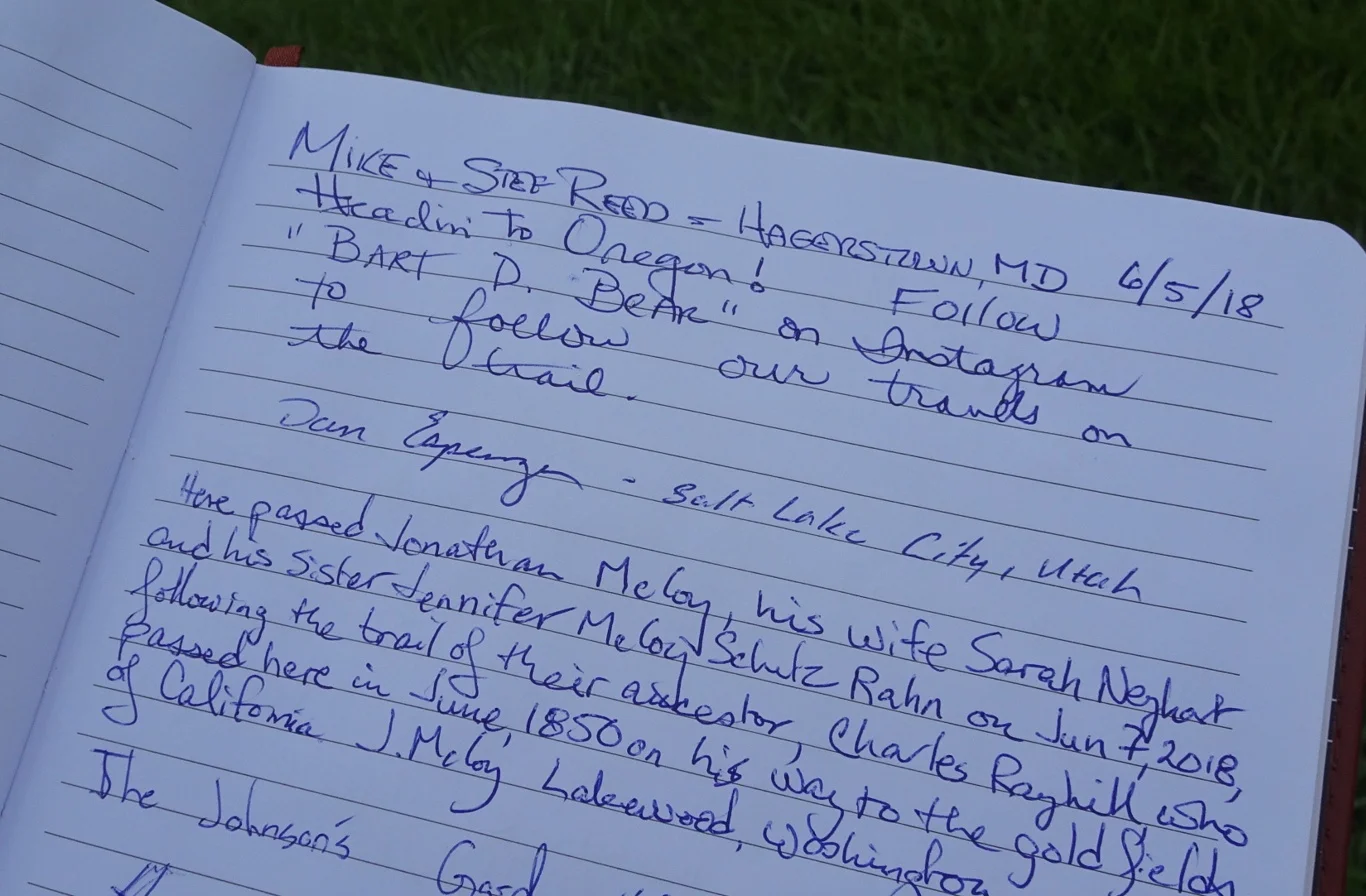 MIKE & STEF REED - HAGERSTOWN, MD 6/5/18
Headin' To Oregon! Follow
"BART D. BEAR" on Instagram
to follow our travels on
the trail.
Dan - Salt Lake City, Utah
Here passed Jonathan McCoy, his wife Sarah Neghat
and his sister Jennifer McCoy Schutz Rahn on Jun 7, 2018,
following the trail of their ancestor, Charles Rayhill who
passed here in June, 1850 on his way to the gold fields
of California J. McCoy Lakewood, Washington
The Johnson's